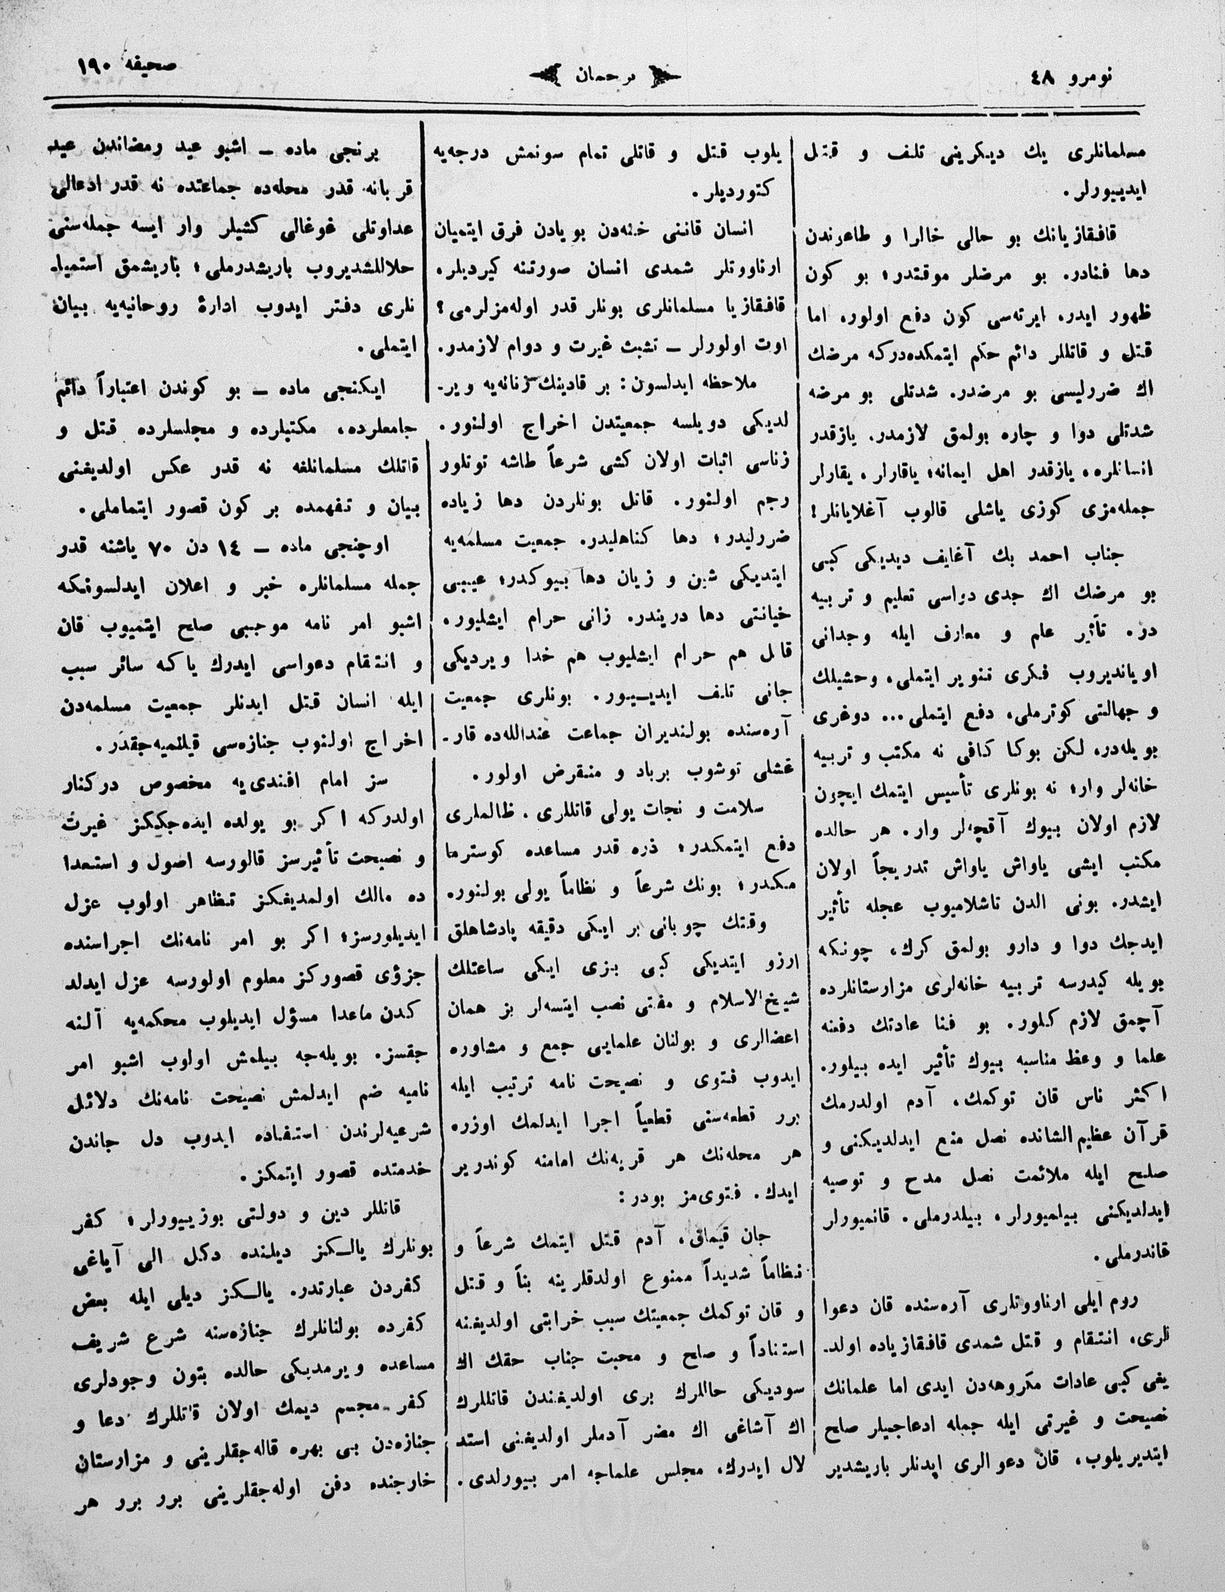 نومرو ٤٨
ترجمان
صحيفه ١٩٠
مسلمانلرى يك ديكرينى تلف و قتل
ايديييورلر.
قافقازيانك بو حالى خالرا و طاعوندن
دها فنادر. بو مرضلر موقتدر؛ بو كون
ظهور ايدر، ايرته‌سى كون دفع اولور، اما
قتل و قاتللر دائم حكم ايتمكده‌دركه مرضك
اك ضررليسى بو مرضدر. شدتلى بو مرضه
شدتلى دوا و چاره بولمق لازمدر. يازقدر
انسانلره، يازقدر اهل ايمانه؛ ياقارلر، يقارلر
جمله‌مزى كوزى ياشلى قالوب آغلايانلر!
جناب احمد بك آغايف ديديكى كبى
بو مرضك اك جدى دواسى تعليم و تربيه
در. تأثير علم و معارف ايله وجدانى
اويانديروب فكرى تنوير ايتملى، وحشيلك
و جهالتى كوترملى، دفع ايتملى... دوغرى
بويله‌در، لكن بوكا كافى نه مكتب و تربيه
خانه‌لر وار؛ نه بونلرى تأسيس ايتمك ايچون
لازم اولان بيوك آقچه‌لر وار. هر حالده
مكتب ايشى ياواش ياواش تدريجاً اولان
ايشدر. بونى الدن تاشلاميوب عجله تأثير
ايدجك دوا و دارو بولمق كرك، چونكه
بويله كيدرسه تربيه خانه‌لرى مزارستانلرده
آچمق لازم كلور. بو فنا عادتك دفعنه
علما و وعظ مناسبه بيوك تأثير ايده بيلور.
اكثر ناس قان توكمك، آدم اولدرمك
قرآن عظيم‌الشانده نصل منع ايدلديكنى و
صلح ايله ملائمت نصل مدح و توصيه
ايدلديكنى بيلميورلر، بيلدرملى. قانميورلر
قاندرملى.
روم ايلى ارناووتلرى آره‌سنده قان دعوا
لرى، انتقام و قتل شمدى قافقازياده اولد-
يغى كبى عادات مكروهه‌دن ايدى اما علمانك
نصيحت و غيرتى ايله جمله ادعاجيلر صلح
ايتديريلوب، قان دعوالرى ايدنلر باريشدير
يلوب قتل و قاتلى تمام سونمش درجه‌يه
كتورديلر.
انسان قاننى خنه‌دن بويادن فرق ايتميان
ارناووتلر شمدى انسان صورتنه كيرديلر.
قافقازيا مسلمانلرى بونلر قدر اوله‌مزلرمى؟
اوت اولورلر – تشبث غيرت و دوام لازمدر.
ملاحظه ايدلسون: بر قادينك زنانه‌يه وير-
لديكى دويلسه جمعيتدن اخراج اولنور.
زناسى اثبات اولان كشى شرعاً طاشه توتلور
رجم اولنور. قاتل بونلردن دها زياده
ضررليدر؛ دها كناهليدر. جمعيت مسلمه‌يه
ايتديكى شين و زيان دها بيوكدر؛ عيبى
خيانتى دها دريندر. زانى حرام ايشليور،
قاتل هم حرام ايشليوب هم خدا ويرديكى
جانى تلف ايديييور. بونلرى جمعيت
آره‌سنده بولنديران جماعت عندالله‌ده قار-
غشلى توشوب برباد و منقرض اولور.
سلامت و نجات يولى قاتللرى، ظالملرى
دفع ايتمكدر؛ ذره قدر مساعده كوسترما
مكدر؛ بونك شرعاً و نظاماً يولى بولنور.
وقتك چوبانى بر ايكى دقيقه پادشاهلق
ارزو ايتديكى كبى بزى ايكى ساعتلك
شيخ‌الاسلام و مفتى نصب ايتسه‌لر بز همان
اعضالرى و بولنان علمايى جمع و مشاوره
ايدوب فتوى و نصيحت نامه ترتيب ايله
برر قطعه‌سنى قطعياً اجرا ايدلمك اوزره
هر محله‌نك هر قريه‌نك امامنه كوندرير
ايدك. فتوى‌مز بودر:
جان قيماق، آدم قتل ايتمك شرعاً و
نظاماً شديداً ممنوع اولدقلرينه بناً و قتل
و قان توكمك جمعيتك سبب خرابتى اولديغنه
استناداً و صلح و محبت جناب حقك اك
سوديكى حاللرك برى اولديغندن قاتللرك
اك آشاغى اك مضر آدملر اولديغنى استد
لال ايدرك، مجلس علماجه امر بيورلدى.
برنجى ماده – اشبو عيد رمضاندن عيد
قربانه قدر محله‌ده جماعتده نه قدر ادعالى
عداوتلى غوغالى كشيلر وار ايسه جمله‌سنى
حلاللشديروب باريشدرملى؛ باريشمق استميا-
نلرى دفتر ايدوب ادارۀ روحانيه‌يه بيان
ايتملى.
ايكنجى ماده – بو كوندن اعتباراً دائم
جامعلرده، مكتبلرده و مجلسلرده قتل و
قاتلك مسلمانلغه نه قدر عكس اولديغنى
بيان و تفهمده بر كون قصور ايتماملى.
اوچنجى ماده – ١٤ دن ٧٠ ياشنه قدر
جمله مسلمانلره خبر و اعلان ايدلسونكه
اشبو امر نامه موجبى صلح ايتميوب قان
و انتقام دعواسى ايدرك ياكه سائر سبب
ايله انسان قتل ايدنلر جمعيت مسلمه‌دن
اخراج اولنوب جنازه‌سى قيلنميه‌جقدر.
سز امام افندى‌يه مخصوص دركنار
اولدركه اكر بو يولده ايده‌جككز غيرت
و نصيحت تأثيرسز قالورسه اصول و استعدا
ده مالك اولمديغكز تظاهر اولوب عزل
ايديلورسز؛ اكر بو امر نامه‌نك اجراسنده
جزؤى قصوركز معلوم اولورسه عزل ايدلد
كدن ماعدا مسؤل ايديلوب محكمه‌يه آلنه
جقسز. بويله‌جه بيلمش اولوب اشبو امر
ناميه ضم ايدلمش نصيحت نامه‌نك دلائل
شرعيه‌لرندن استفاده ايدوب دل جاندن
خدمتده قصور ايتمكز.
قاتللر دين و دولتى بوزييورلر؛ كفر
بونلرك يالكز ديلنده دكل الى آياغى
كفردن عبارتدر. يالكز ديلى ايله بعض
كفرده بولنانلرك جنازه‌سنه شرع شريف
مساعده ويرمديكى حالده بتون وجودلرى
كفر مجسم ديمك اولان قاتللرك دعا و
جنازه‌دن بى بهره قاله‌جقلرينى و مزارستان
خارجنده دفن اوله‌جقلرينى برر برر هر